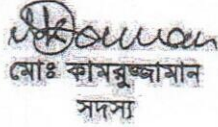 মোঃ কামরুজ্জামান
সদস্য